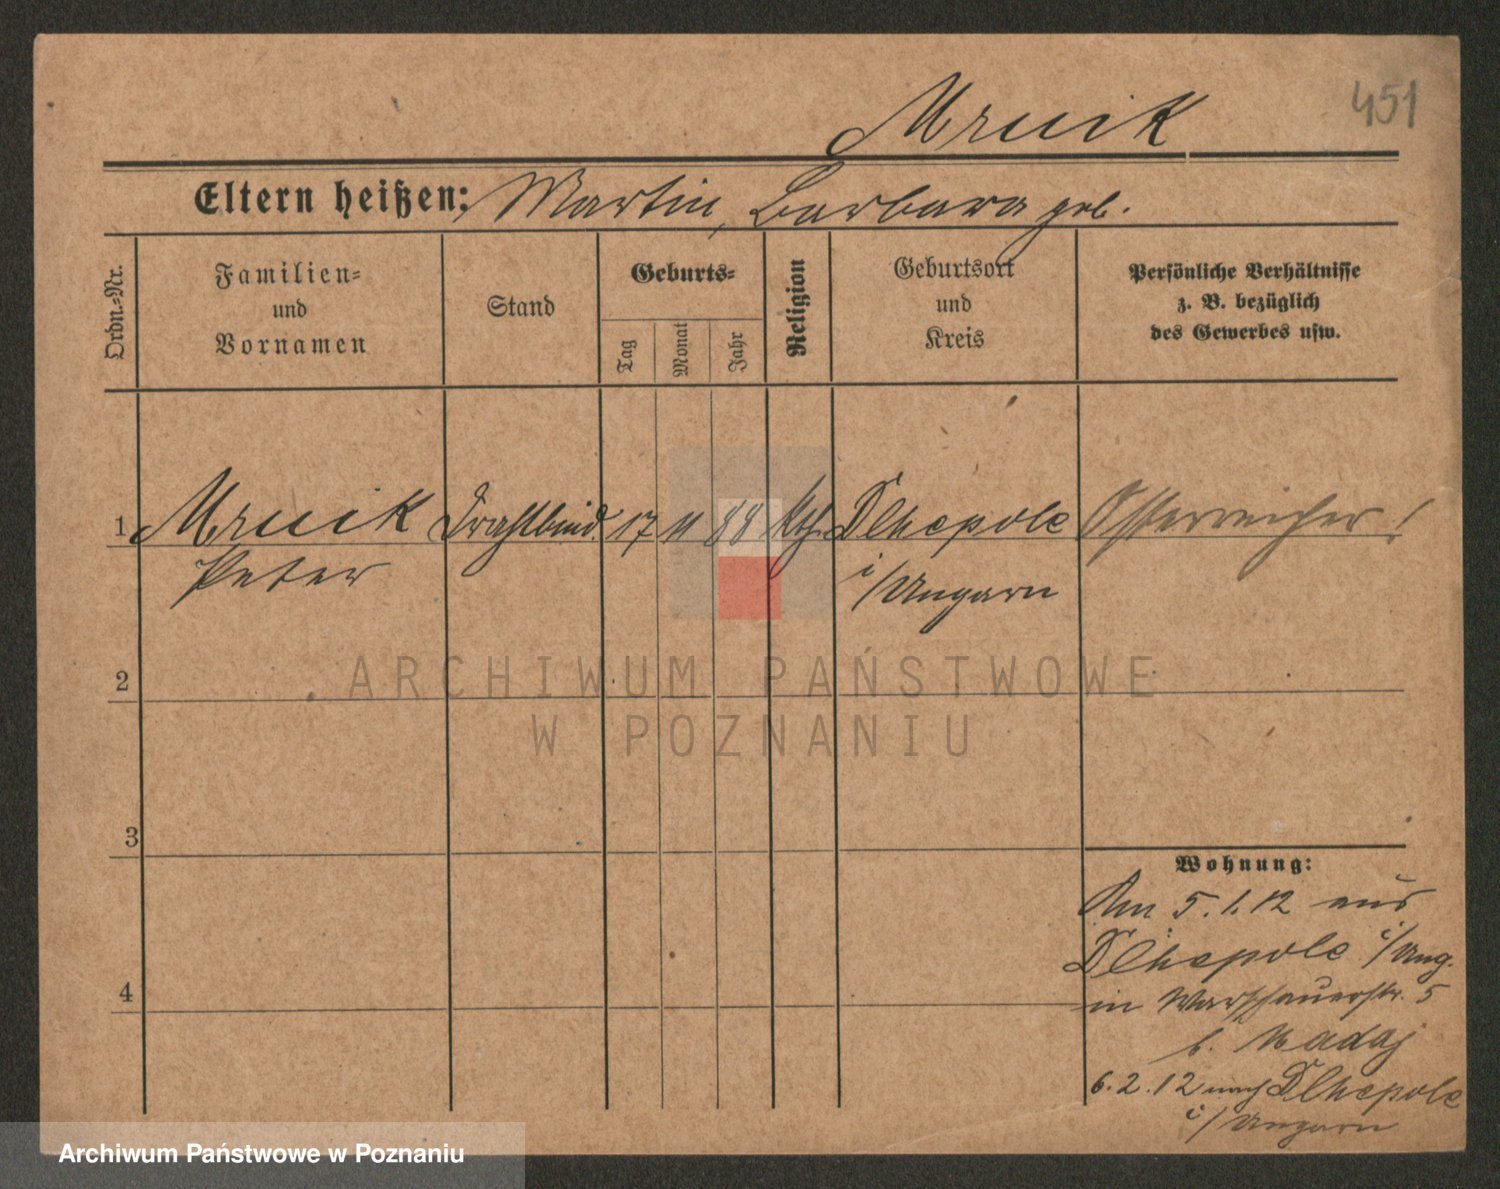 451
Mrucik
Eltern heißen: Martin, Barbara geb.
Ordn.-Nr.
Familien-
und
Vornamen
Stand
Geburts-
Tag
Monat
Jahr
Religion
Geburtsort
und
Kreis
Persönliche Verhältnisse
z. B. bezüglich
des Gewerbes usw.
1 Mrucik Drahtbind. 17 11 88 kth. Dlhepole Österreicher!
Peter i/Ungarn
2
3
4
Wohnung:
Am 5.1.12 aus
Dlhepole i/Ung.
in Warschauerstr. 5
b. Madaj
6.2.12 nach Dlhepole
i/Ungarn
ARCHIWUM PAŃSTWOWE
W POZNANIU
Archiwum Państwowe w Poznaniu